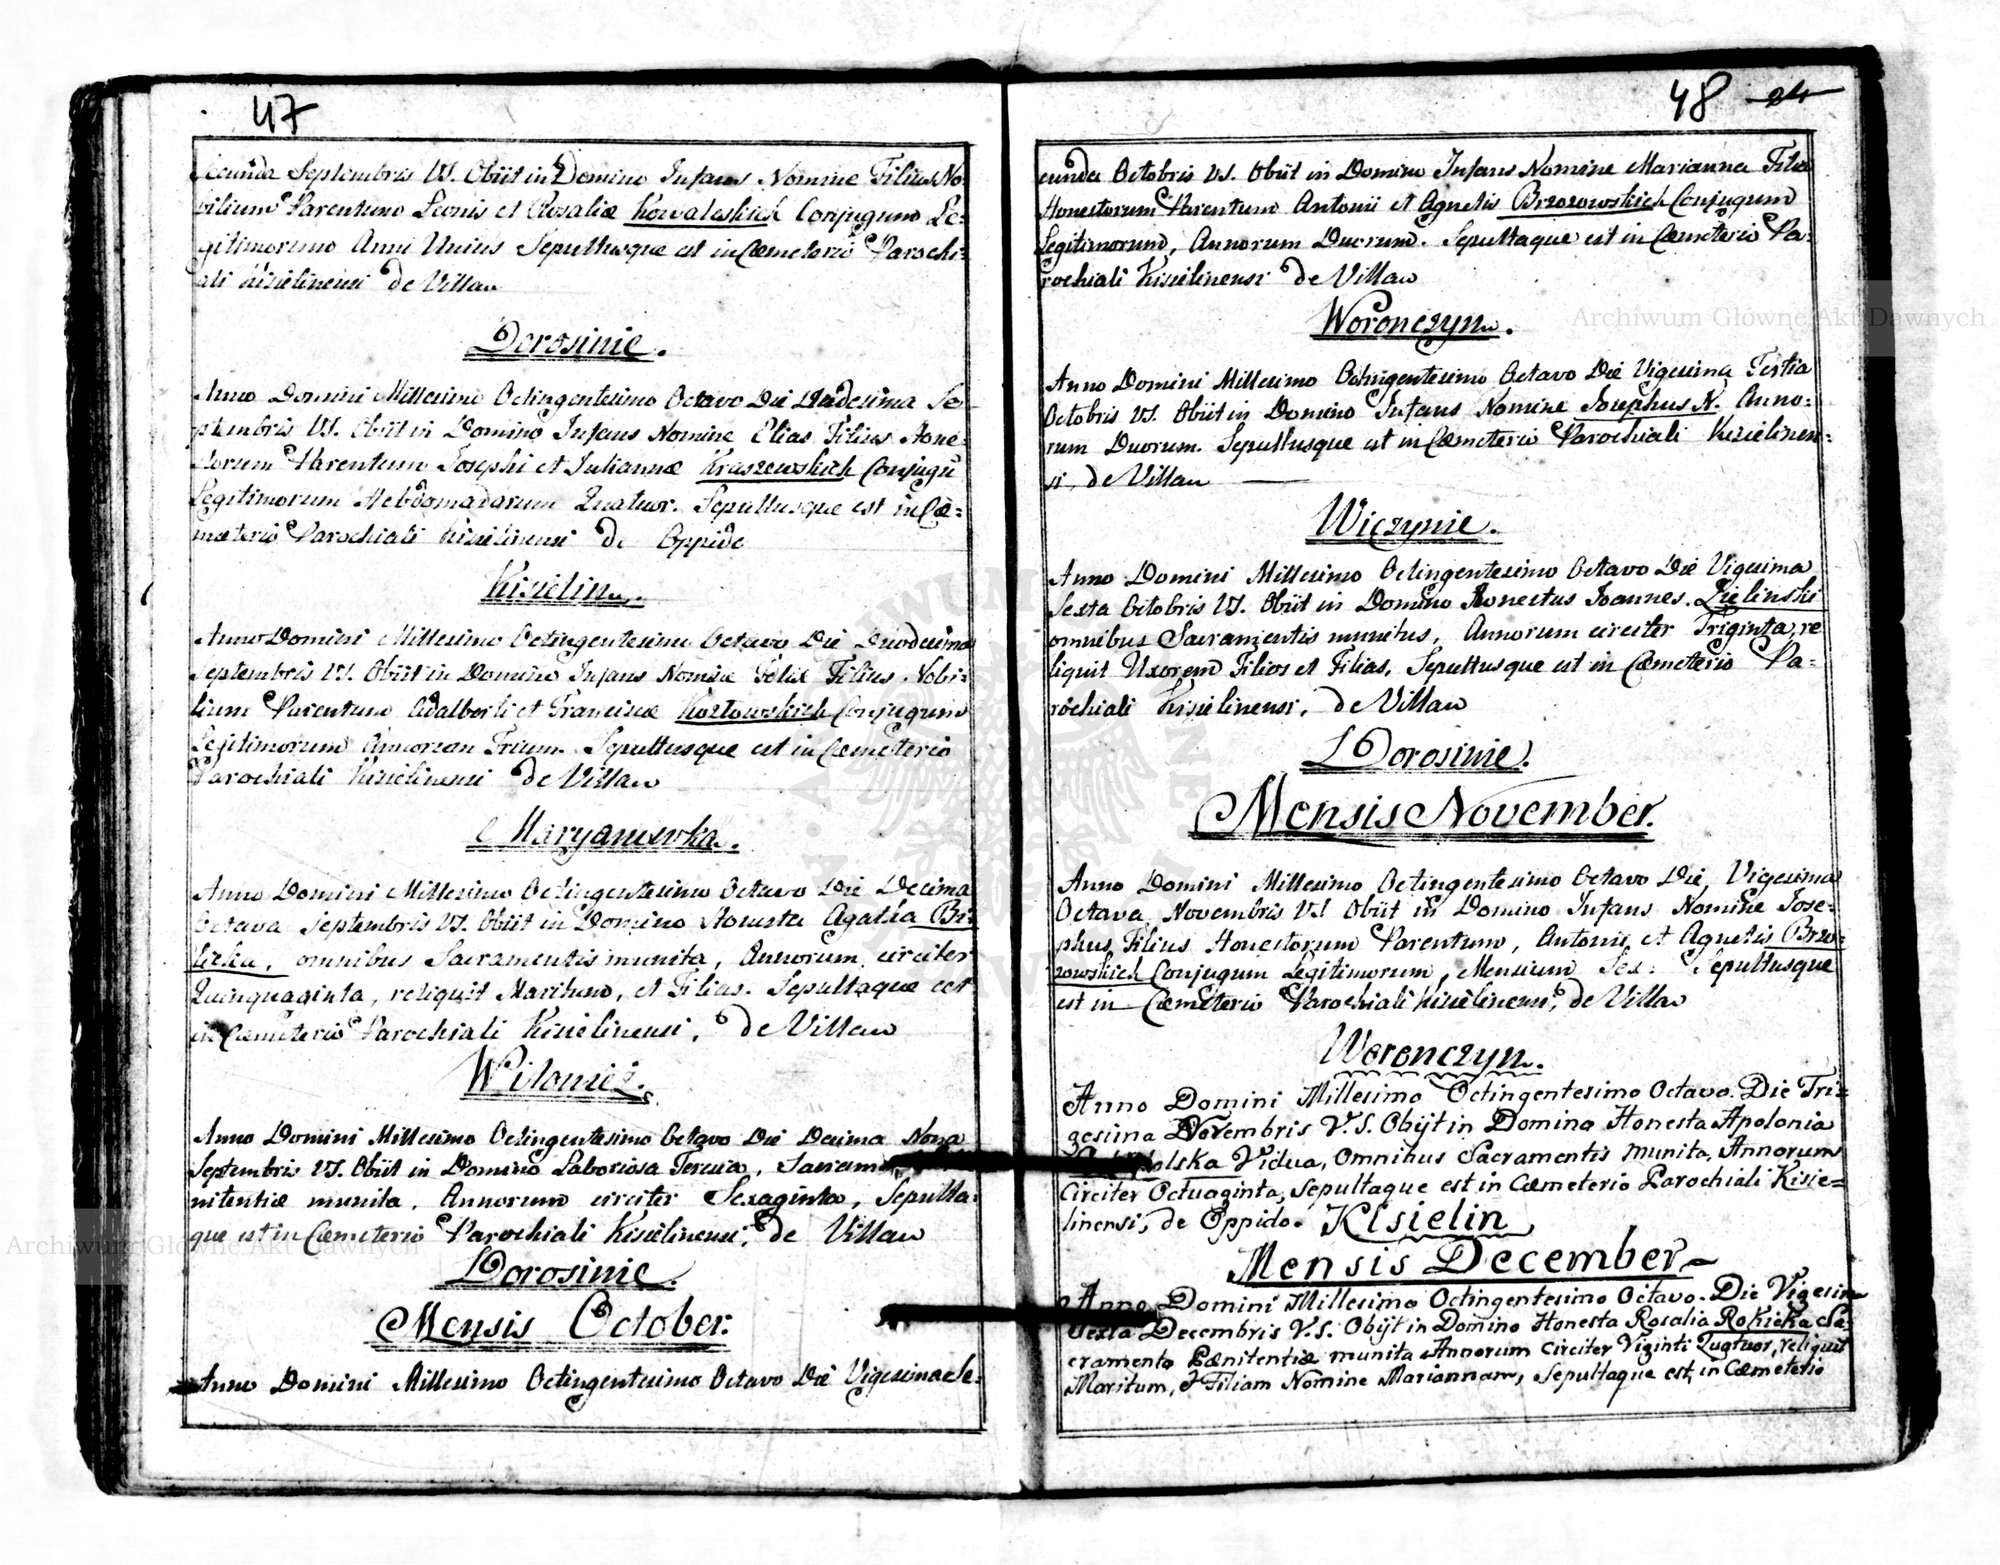 47
cunda Septembris VS. Obiit in Domino Infans Nomine Filius No-
bilium Parentum Leonis et Rosaliæ Kowaleskich Conjugum Le-
gitimorum Anni Unius Sepultusque est in Cæmeterio Parochi-
ali Kisielinensi de Villa
Dorosinie.
Anno Domini Millesimo Octingentesimo Octavo Die Undesima Se-
ptembris VS. Obiit in Domino Infans Nomine Elias Filius Hone-
storum Parentum Josephi et Juliannæ Kraszewskich Conjugū
Legitimorum Hebdomadarum Quatuor. Sepultusque est in Cæ-
meterio Parochiali Kisielinensi de Oppido
Kisielin.
Anno Domini Millesimo Octingentesimo Octavo Die Duodecima
Septembris VS. Obiit in Domino Infans Nomine Felix Filius Nobi-
lium Parentum Adalberti et Franciscæ Kozłowskich Conjugum
Legitimorum Annorum Trium. Sepultusque est in Cæmeterio
Parochiali Kisielinensi de Villa
Maryanowka.
Anno Domini Millesimo Octingentesimo Octavo Die Decima
Octava Septembris VS. Obiit in Domino Honesta Agatha Bi-
omnibus Sacramentis munita, Annorum circiter
Quinquaginta, reliquit Maritum, et Filias. Sepultaque est
in Cæmeterio Parochiali Kisielinensi, de Villa
Witoniż.
Anno Domini Millesimo Octingentesimo Octavo Die Decima Nona
Septembris VS. Obiit in Domino Laboriosa Teresia, Sacram
nitentiæ munita, Annorum circiter Sexaginta, Sepulta-
que est in Cæmeterio Parochiali Kisielinensi, de Villa
Dorosinie.
Mensis October.
Anno Domini Millesimo Octingentesimo Octavo Die Vigesima Se-
48 24
cunda Octobris VS. Obiit in Domino Infans Nomine Marianna Filia
Honestorum Parentum Antonii et Agnetis Brzozowskich Conjugum
Legitimorum, Annorum Duorum. Sepultaque est in Cæmeterio Pa-
rochiali Kisielinensi de Villa
Woronczyn.
Anno Domini Millesimo Octingentesimo Octavo Die Vigesima Tertia
Octobris VS. Obiit in Domino Infans Nomine Josephus N. Anno-
rum Duorum. Sepultusque est in Cæmeterio Parochiali Kisielinen-
si, de Villa
Wiczynie.
Anno Domini Millesimo Octingentesimo Octavo Die Vigesima
Sexta Octobris VS. Obiit in Domino Honestus Joannes Zielinski
omnibus Sacramentis munitus, Annorum circiter Triginta, re
liquit Uxorem Filios et Filias, Sepultusque est in Cæmeterio Pa-
rochiali Kisielinensi, de Villa
Dorosinie.
Mensis November.
Anno Domini Millesimo Octingentesimo Octavo Die, Vigesima
Octava Novembris VS Obiit in Domino Infans Nomine Jose-
phus, Filius Honestorum Parentum, Antonii, et Agnetis Brzo-
zowskich Conjugum Legitimorum, Mensium Sex. Sepultusque
est in Cæmeterio Parochiali Kisielinensi, de Villa
Woronczyn.
Anno Domini Millesimo Octingentesimo Octavo. Die Tri-
gesima Novembris V.S. Obijt in Domina Honesta Apolonia
Vidua, Omnibus Sacramentis munita, Annorum
Circiter Octuaginta, Sepultaque est in Cæmeterio Parochiali Kisie-
linensi, de Oppido. Kisielin
Mensis December
Anno Domini Millesimo Octingentesimo Octavo. Die Vigesima
Sexta Decembris V.S. Obijt in Domino Honesta Rosalia Rokicka Sa-
cramento Pænitentiæ munita Annorum Circiter Viginti Quatuor, reliquit
Maritum, & Filiam Nomine Mariannam, Sepultaque est, in Cæmeterio
Archiwum Główne Akt Dawnych
Archiwum Główne Akt Dawnych